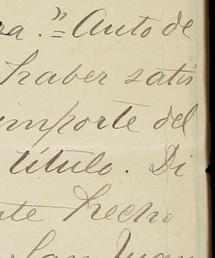 ra." = Auto de
haber satis
importe del
título. Di
ste hecho
San Juan